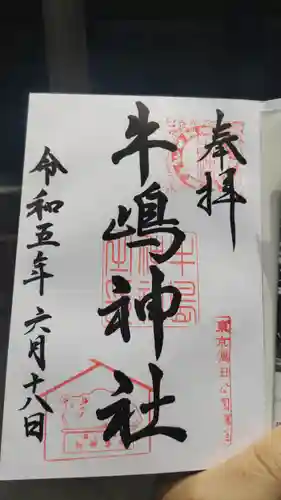 奉拝
牛嶋神社
令和五年六月十八日